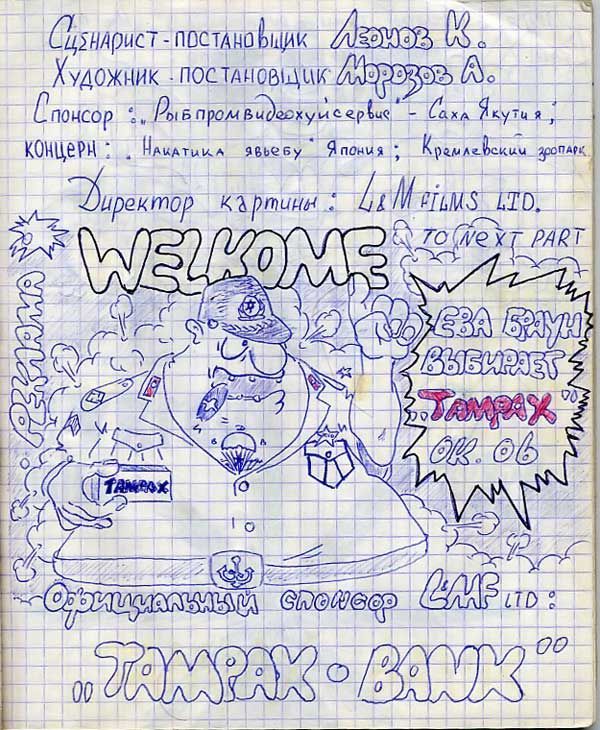 Сценарист-постановщик Леонов К.
Художник-постановщик Морозов А.
Спонсор: „Рыбпромвидеохуйсервис" - Саха Якутия;
концерн: „Накатика явьебу" Япония; Кремлевский зоопарк.
Директор картины: L&M FILMS LTD.
WELKOME
TO NEXT PART
РЕКЛАМА
ЕВА БРАУН
ВЫБИРАЕТ
„TAMPAX"
ОК. ОБ
TAMPAX
Официальный спонсор L&MF LTD:
„TAMPAX • BANK"